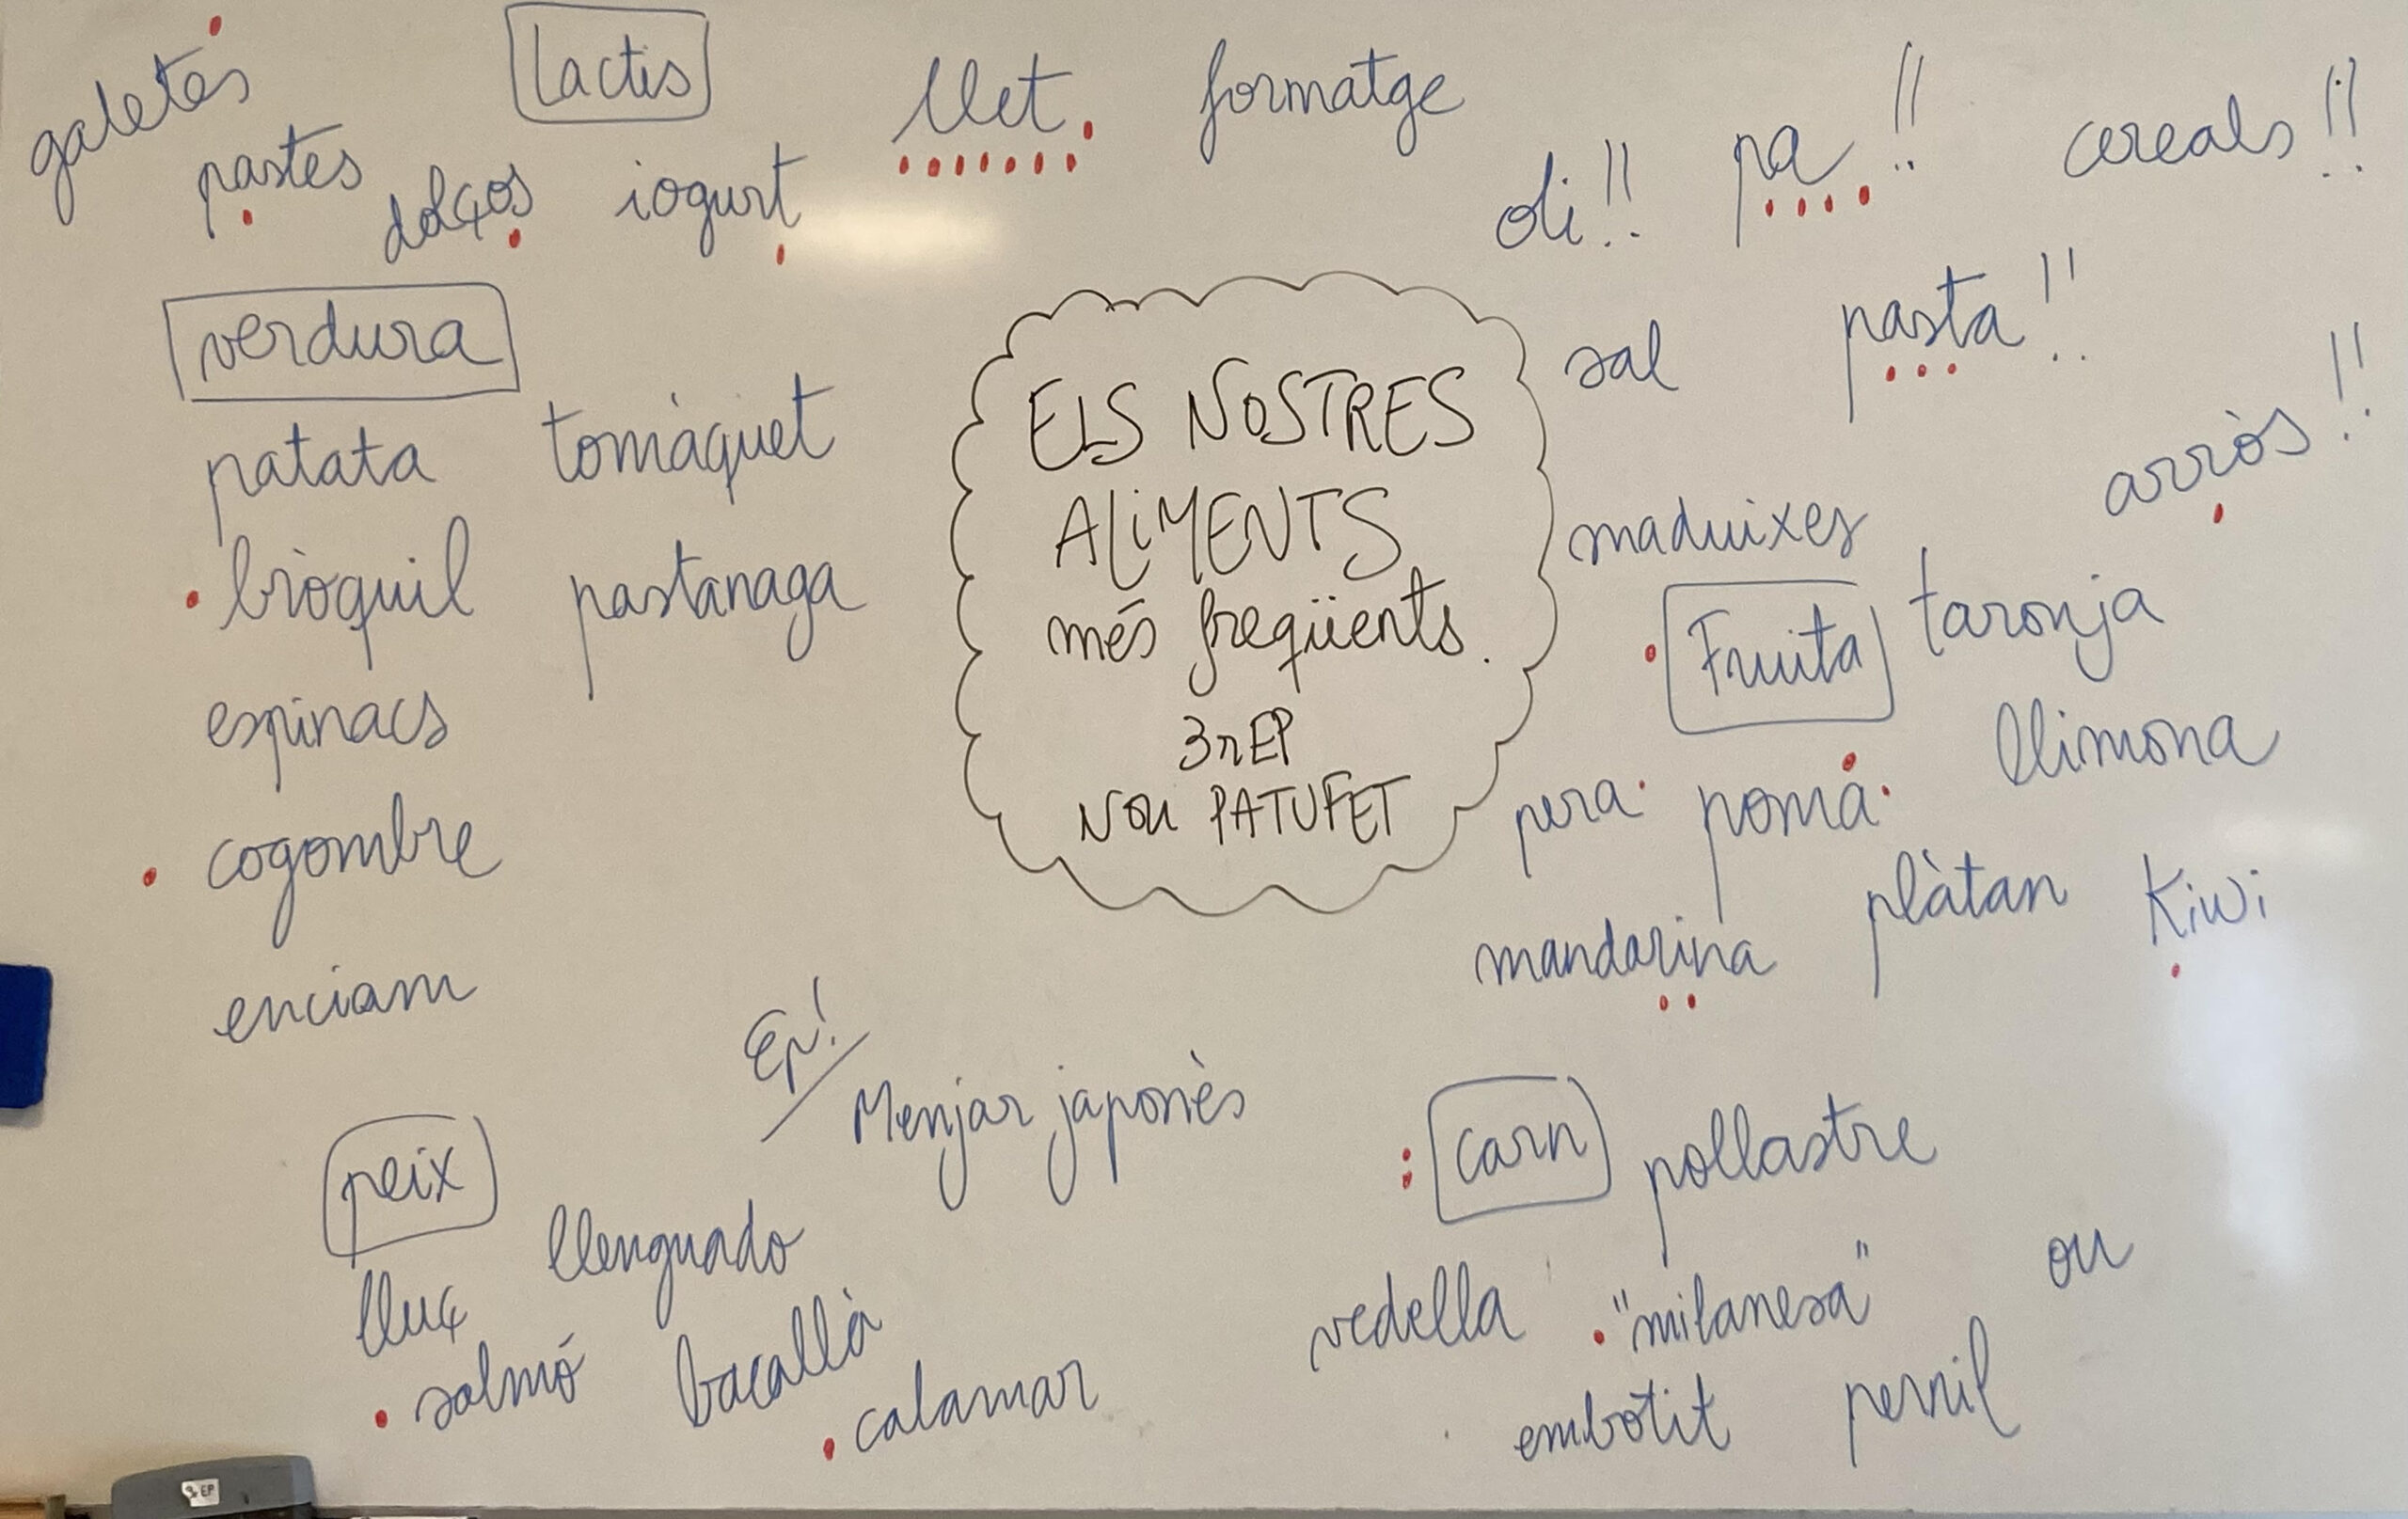 galetes
pastes
dolços
Lactis
llet. formatge
iogurt
oli!! pa!! cereals!!
sal pasta!!
arròs!!
verdura
patata tomàquet
bròquil pastanaga
espinacs
cogombre
enciam
ELS NOSTRES
ALIMENTS
més freqüents.
3r EP
NOU PATUFET
maduixes
Fruita taronja
pera poma llimona
mandarina plàtan Kiwi
Ep!
Menjar japonès
peix
lluç llenguado
salmó bacallà
calamar
carn pollastre
vedella "milanesa" ou
embotit pernil
3r EP